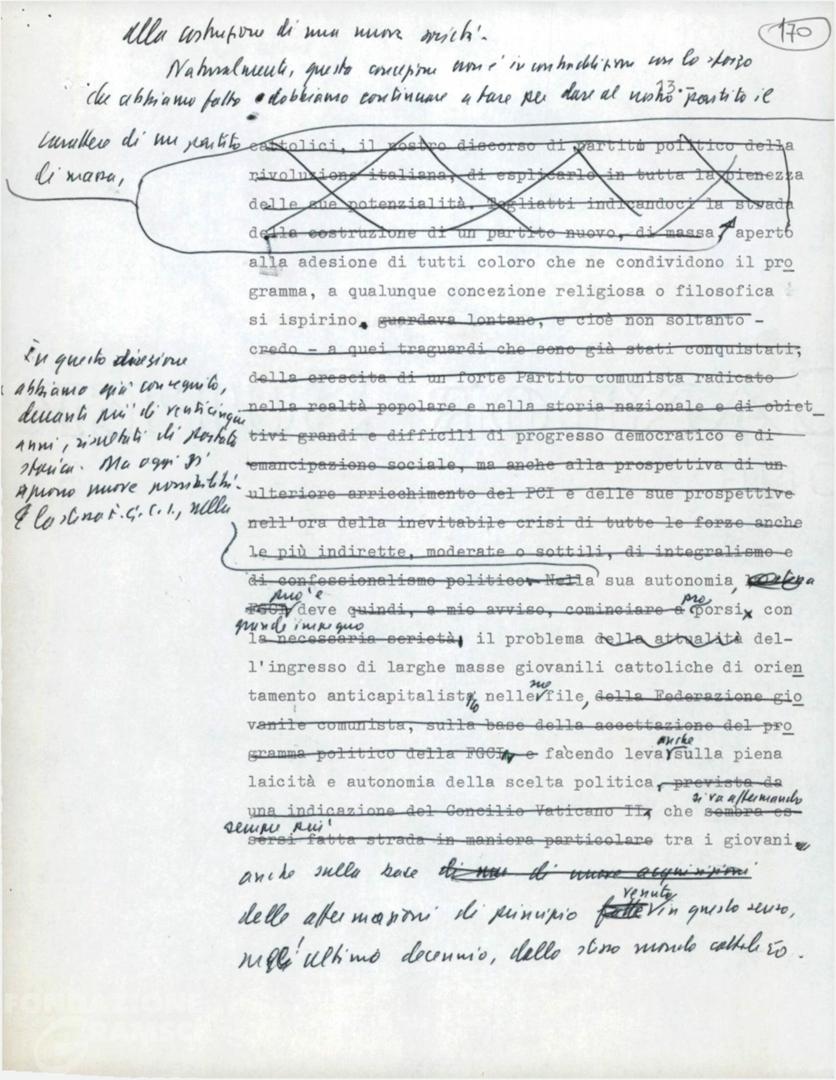 170
alla costruzione di una nuova società.
Naturalmente, questa concezione non è in contraddizione con lo sforzo
che abbiamo fatto e dobbiamo continuare a fare per dare al nostro partito il
13.-
carattere di un partito
di massa,
cattolici, il nostro discorso di partito politico della
rivoluzione italiana, di esplicarlo in tutta la pienezza
delle sue potenzialità. Togliatti indicandoci la strada
della costruzione di un partito nuovo, di massa, aperto
alla adesione di tutti coloro che ne condividono il pro
gramma, a qualunque concezione religiosa o filosofica
si ispirino, guardava lontano, e cioè non soltanto -
credo - a quei traguardi che sono già stati conquistati,
della crescita di un forte Partito comunista radicato
nella realtà popolare e nella storia nazionale e di obiet_
tivi grandi e difficili di progresso democratico e di
emancipazione sociale, ma anche alla prospettiva di un
ulteriore arricchimento del PCI e delle sue prospettive
nell'ora della inevitabile crisi di tutte le forze anche
le più indirette, moderate o sottili, di integralismo e
di confessionalismo politico. Nella sua autonomia, la
In questa direzione
abbiamo già conseguito,
durante più di venticinque
anni, risultati di portata
storica. Ma oggi si
aprono nuove possibilità.
E la stessa F.G.C.I., nella
può e
FGCI deve quindi, a mio avviso, cominciare a porsi, con
pro
grande impegno
la necessaria serietà, il problema della attualità del-
l'ingresso di larghe masse giovanili cattoliche di orien
tamento anticapitalista nelle file, della Federazione gio
sue
vanile comunista, sulla base della accettazione del pro
gramma politico della FGCI, e facendo leva sulla piena
anche
laicità e autonomia della scelta politica, prevista da
una indicazione del Concilio Vaticano II, che sembra es-
si va affermando
sempre più
sersi fatta strada in maniera particolare tra i giovani
anche sulla base di nuove acquisizioni
delle affermazioni di principio fatte in questo senso,
venute
nell'ultimo decennio, dallo stesso mondo cattolico.
FONDAZIONE
GRAMSCI